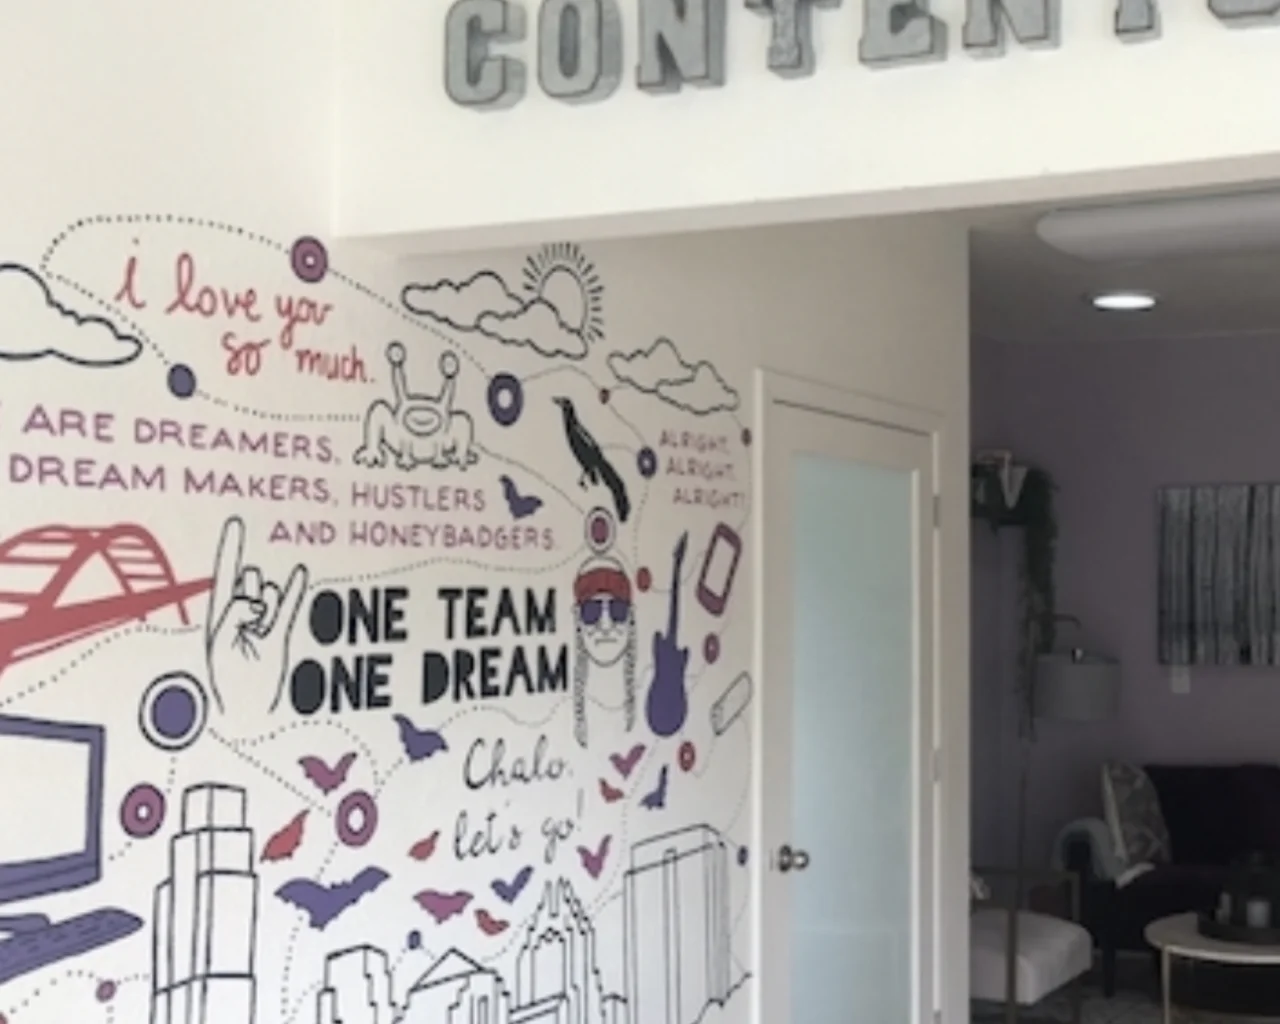 CONTENTS
i love you
so much.
ARE DREAMERS,
DREAM MAKERS, HUSTLERS
AND HONEYBADGERS.
ALRIGHT,
ALRIGHT,
ALRIGHT!
ONE TEAM
ONE DREAM
Chalo,
let's go!